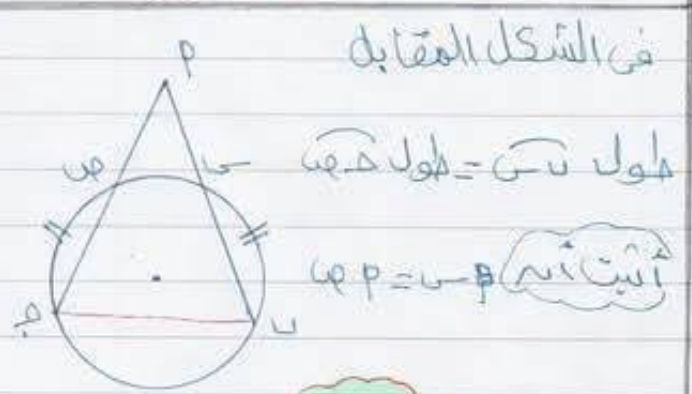 فى الشكل المقابل
طول ب س = طول ج ص
أثبت أنه م س = م ص
م
ص
س
ج
ب